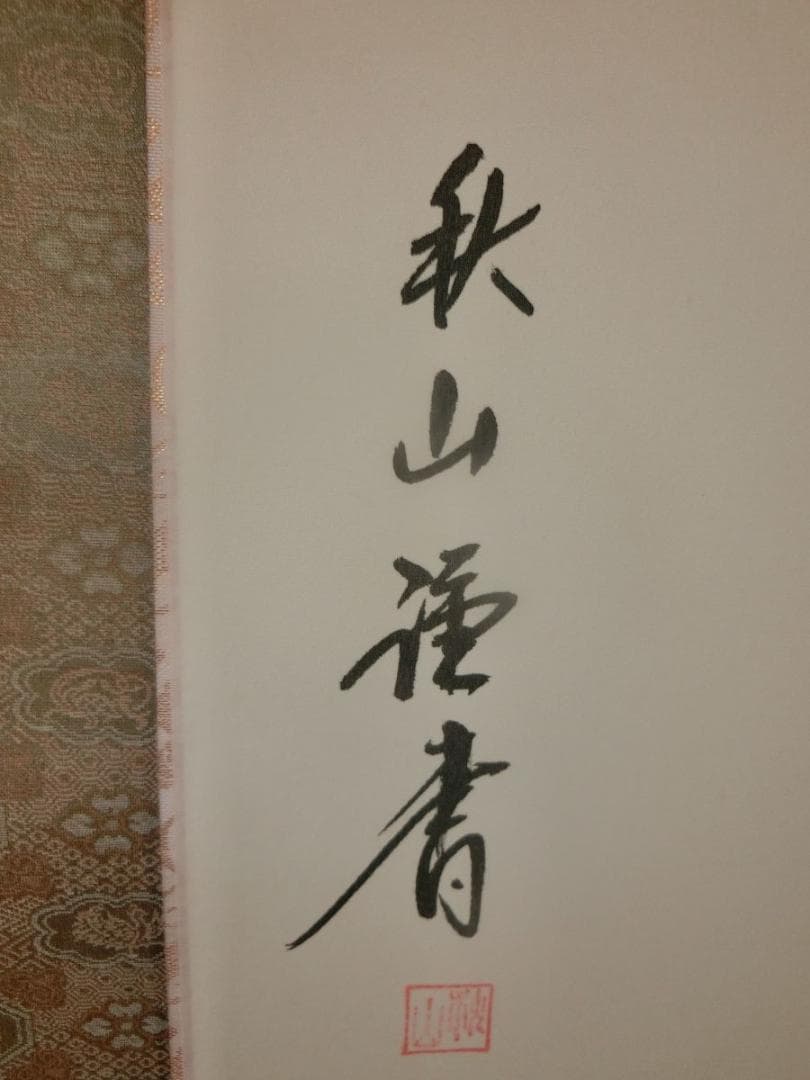 秋山謹書